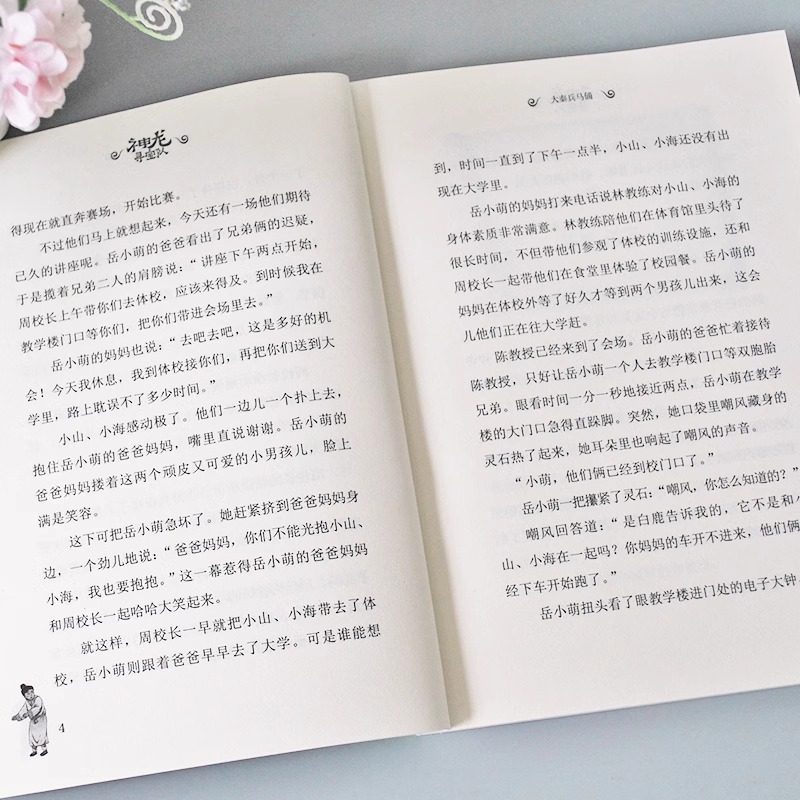 神龙
寻宝队
得现在就直奔赛场，开始比赛。
不过他们马上就想起来，今天还有一场他们期待
已久的讲座呢。岳小萌的爸爸看出了兄弟俩的迟疑，
于是揽着兄弟二人的肩膀说：“讲座下午两点开始，
周校长上午带你们去体校，应该来得及。到时候我在
教学楼门口等你们，把你们带进会场里去。”
岳小萌的妈妈也说：“去吧去吧，这是多好的机
会！今天我休息，我到体校接你们，再把你们送到大
学里，路上耽误不了多少时间。”
小山、小海感动极了。他们一边儿一个扑上去，
抱住岳小萌的爸爸妈妈，嘴里直说谢谢。岳小萌的
爸爸妈妈搂着这两个顽皮又可爱的小男孩儿，脸上
满是笑容。
这下可把岳小萌急坏了。她赶紧挤到爸爸妈妈身
边，一个劲儿地说：“爸爸妈妈，你们不能光抱小山、
小海，我也要抱抱。”这一幕惹得岳小萌的爸爸妈妈
和周校长一起哈哈大笑起来。
就这样，周校长一早就把小山、小海带去了体
校，岳小萌则跟着爸爸早早去了大学。可是谁能想
4
大秦兵马俑
到，时间一直到了下午一点半，小山、小海还没有出
现在大学里。
岳小萌的妈妈打来电话说林教练对小山、小海的
身体素质非常满意。林教练陪他们在体育馆里头待了
很长时间，不但带他们参观了体校的训练设施，还和
周校长一起带他们在食堂里体验了校园餐。岳小萌的
妈妈在体校外等了好久才等到两个男孩儿出来，这会
儿他们正在往大学赶。
陈教授已经来到了会场。岳小萌的爸爸忙着接待
陈教授，只好让岳小萌一个人去教学楼门口等双胞胎
兄弟。眼看时间一分一秒地接近两点，岳小萌在教学
楼的大门口急得直跺脚。突然，她口袋里嘲风藏身的
灵石热了起来，她耳朵里也响起了嘲风的声音。
“小萌，他们俩已经到校门口了。”
岳小萌一把攥紧了灵石：“嘲风，你怎么知道的？”
嘲风回答道：“是白鹿告诉我的，它不是和小
山、小海在一起吗？你妈妈的车开不进来，他们俩
经下车开始跑了。”
岳小萌扭头看了眼教学楼进门处的电子大钟，